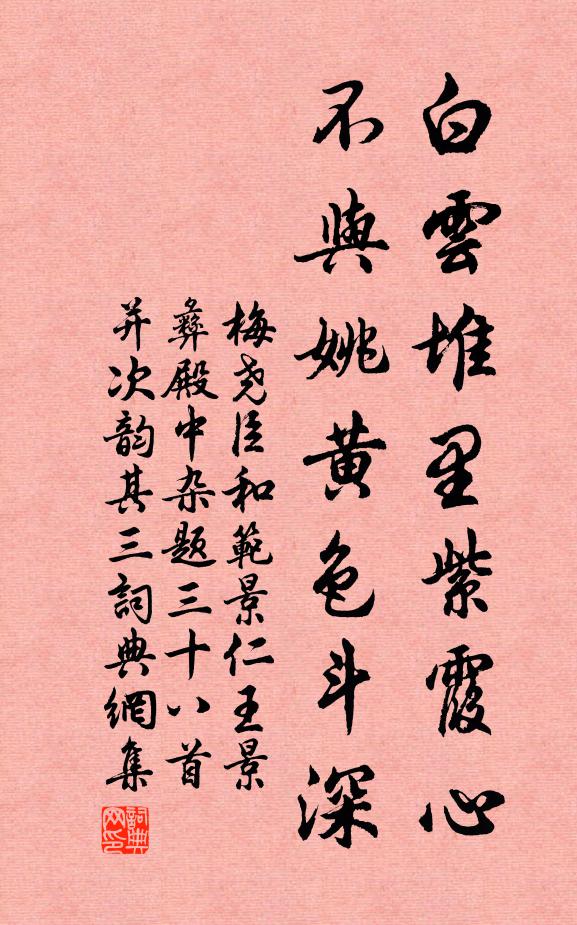 白雲堆里紫霞心
不與姚黄色斗深
梅尧臣和範景仁王景
彝殿中杂题三十八首
并次韵其三詞典網集
詞典網印